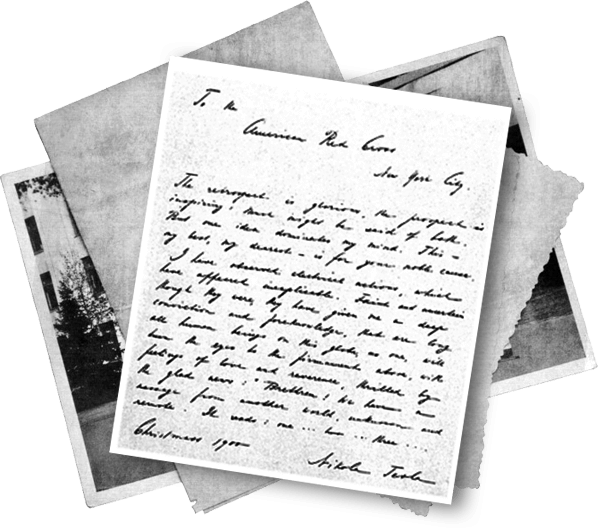 To the
American Red Cross
New York City.
The retrospect is glorious, the prospect is
inspiring; Much might be said of both.
But one idea dominates my mind. This –
my best, my dearest – is for your noble cause.
I have observed electrical actions, which
have appeared inexplicable. Faint and uncertain
though they were, they have given me a deep
conviction and foreknowledge, that ere long
all human beings on this globe, as one, will
turn the eyes to the firmament above, with
feelings of love and reverence, thrilled by
the glad news: "Brethren! We have a
message from another world, unknown and
remote. It reads: one ... two ... three ....
Christmas 1900
Nikola Tesla